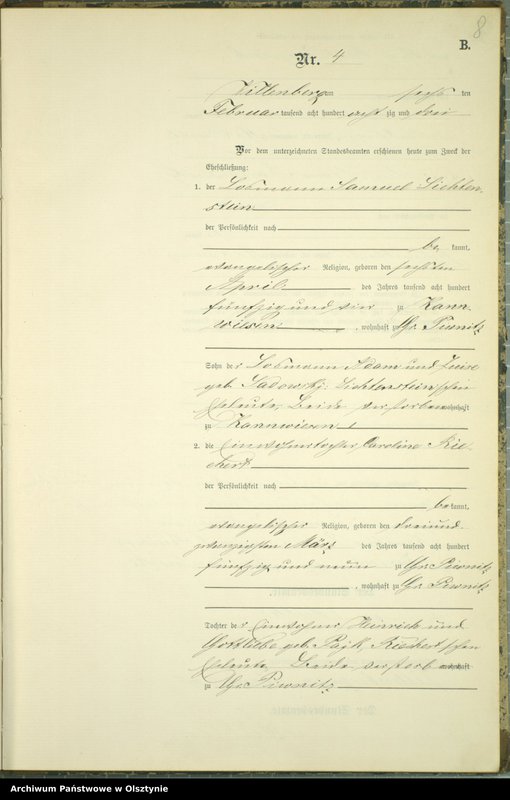 8
B.
Nr. 4
Wittenberg am sechs ten
Februar tausend acht hundert acht zig und drei
Vor dem unterzeichneten Standesbeamten erschienen heute zum Zweck der
Eheschließung:
1. der Losmann Samuel Lichten-
stein
der Persönlichkeit nach
be kannt,
evangelischer Religion, geboren den sechsten
April des Jahres tausend acht hundert
fünfzig und vier zu Kann-
wiesen, wohnhaft zu Gr. Piwnitz
Sohn der Losmann Adam und Luise
geb. Sadowski, Lichtenstein'schen
Eheleute, Beide verstorben wohnhaft
zu Kannwiesen
2. die Einwohnertochter Caroline Rie-
chert
der Persönlichkeit nach
be kannt,
evangelischer Religion, geboren den dreiund-
zwanzigsten März des Jahres tausend acht hundert
fünfzig und neun zu Gr. Piwnitz
, wohnhaft zu Gr. Piwnitz
Tochter der Einwohner Heinrich und
Gottliebe geb. Riechert'schen
Eheleute, Beide verstorb wohnhaft
zu Gr. Piwnitz
Archiwum Państwowe w Olsztynie